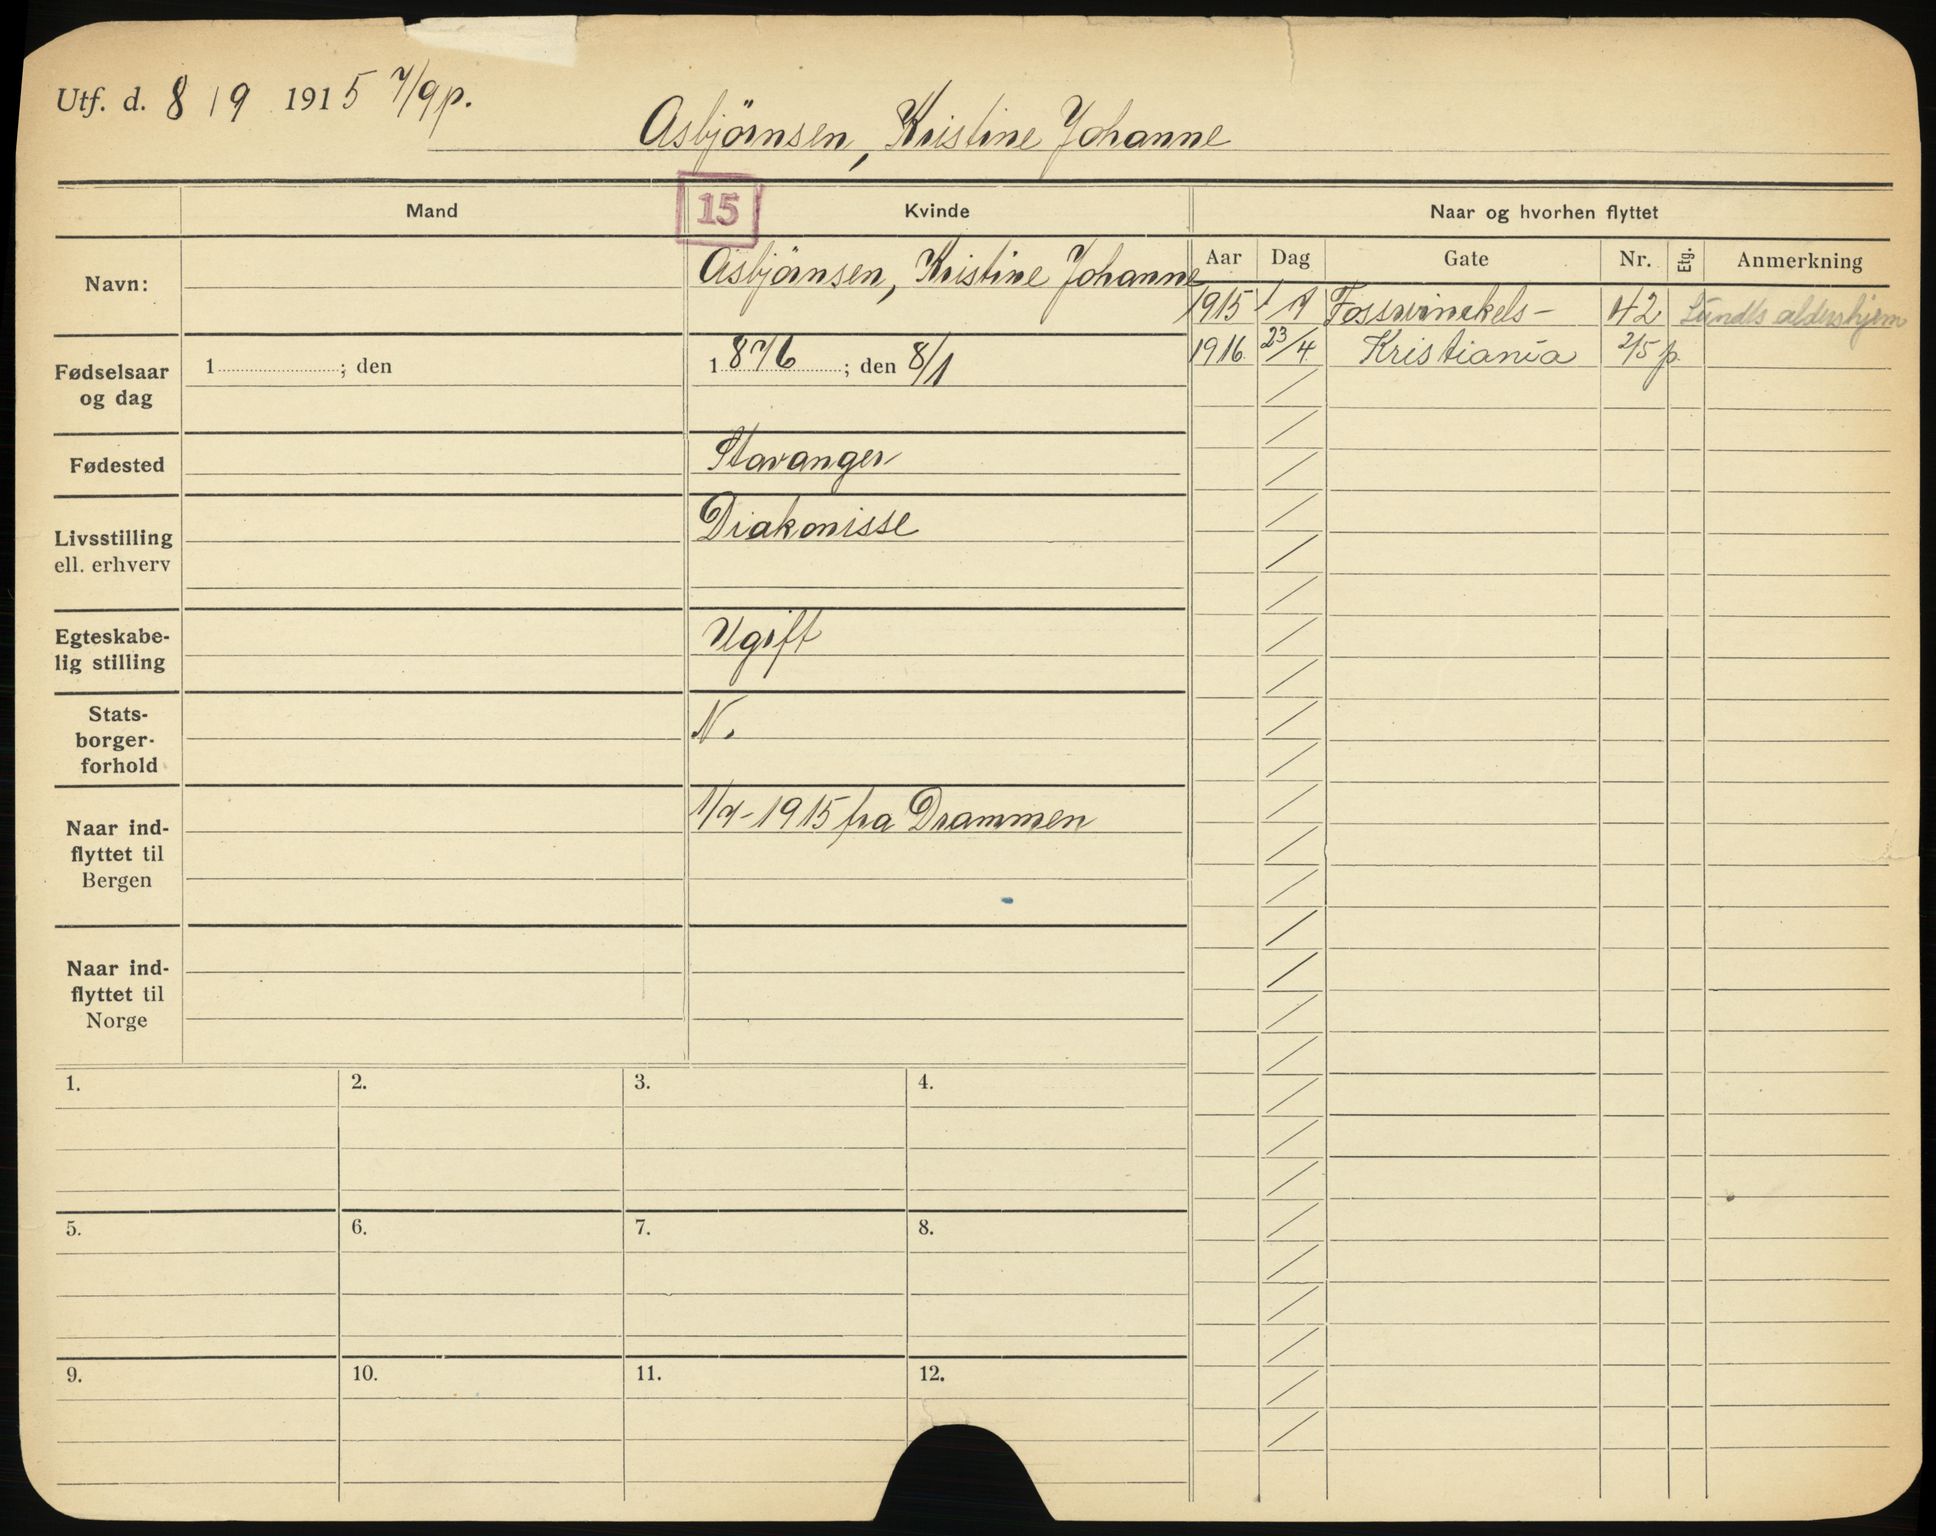 Utf. d. 8/9 1915 7/9 p.
Asbjörnsen, Kristine Johanne
15
Mand Kvinde Naar og hvorhen flyttet
Aar Dag Gate Nr. Etg. Anmerkning
Navn: Asbjörnsen, Kristine Johanne
1915 1/7 Fosswinckels- 42 Sundts aldershjem
1916 23/4 Kristiania 2/5 p.
Fødselsaar
og dag
1 ; den
1876 ; den 8/1
Fødested Stavanger
Livsstilling
ell. erhverv
Diakonisse
Egteskabe-
lig stilling
Ugift
Stats-
borger-
forhold
N.
Naar ind-
flyttet til
Bergen
1/7-1915 fra Drammen
Naar ind-
flyttet til
Norge
1. 2. 3. 4.
5. 6. 7. 8.
9. 10. 11. 12.